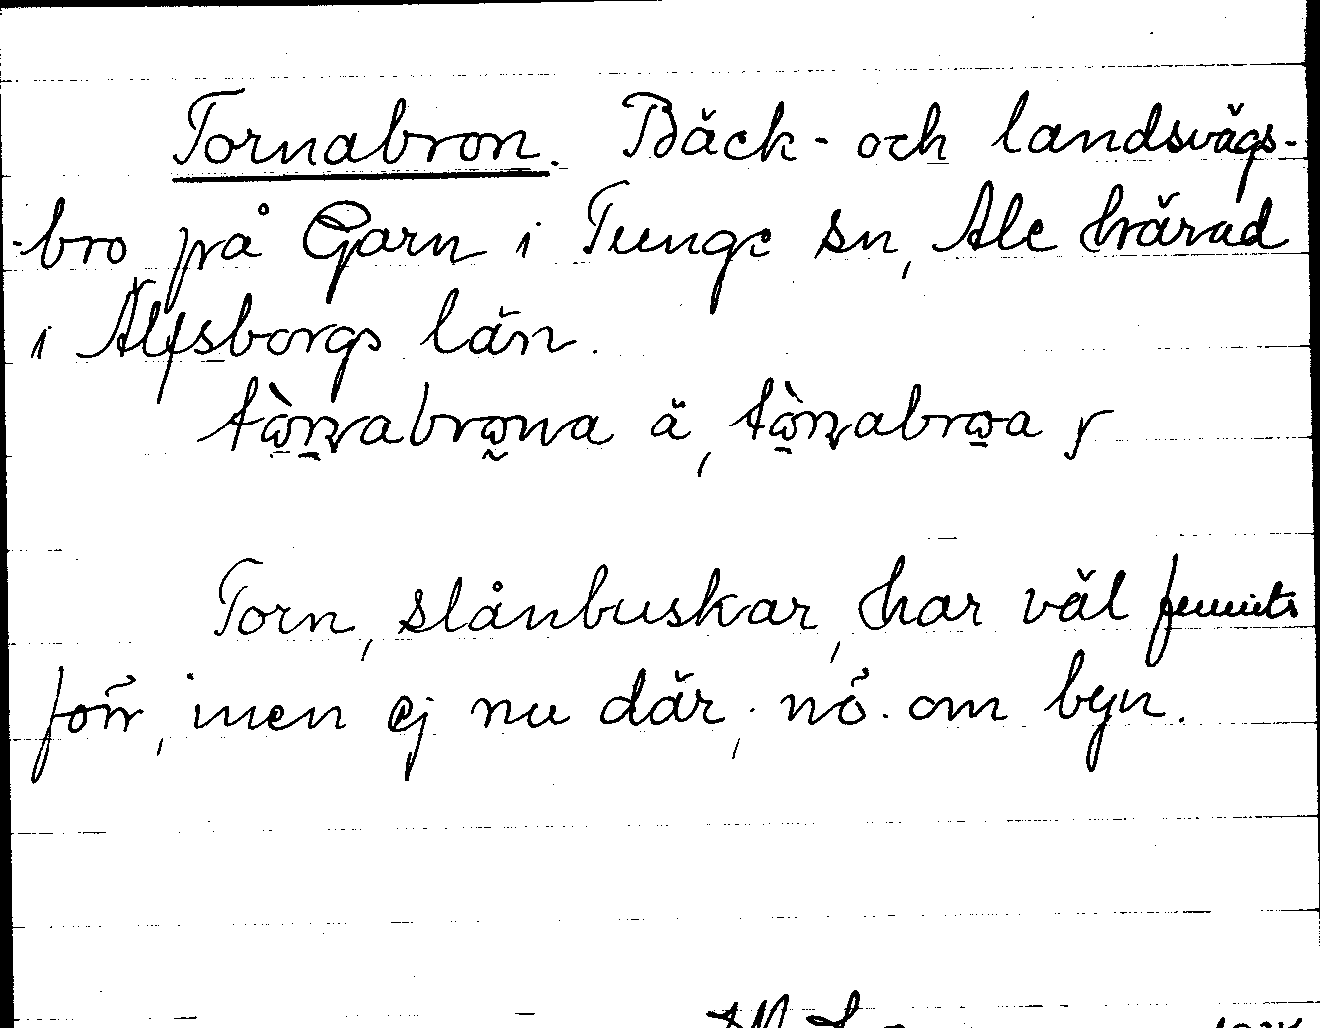 Tornabron. Bäck- och landsvägs-
-bro på Garn i Tunge sn, Ale härad
i Älfsborgs län.
ä,
Torn, slånbuskar, har väl funnits
förr, men ej nu där, nö. om byn.